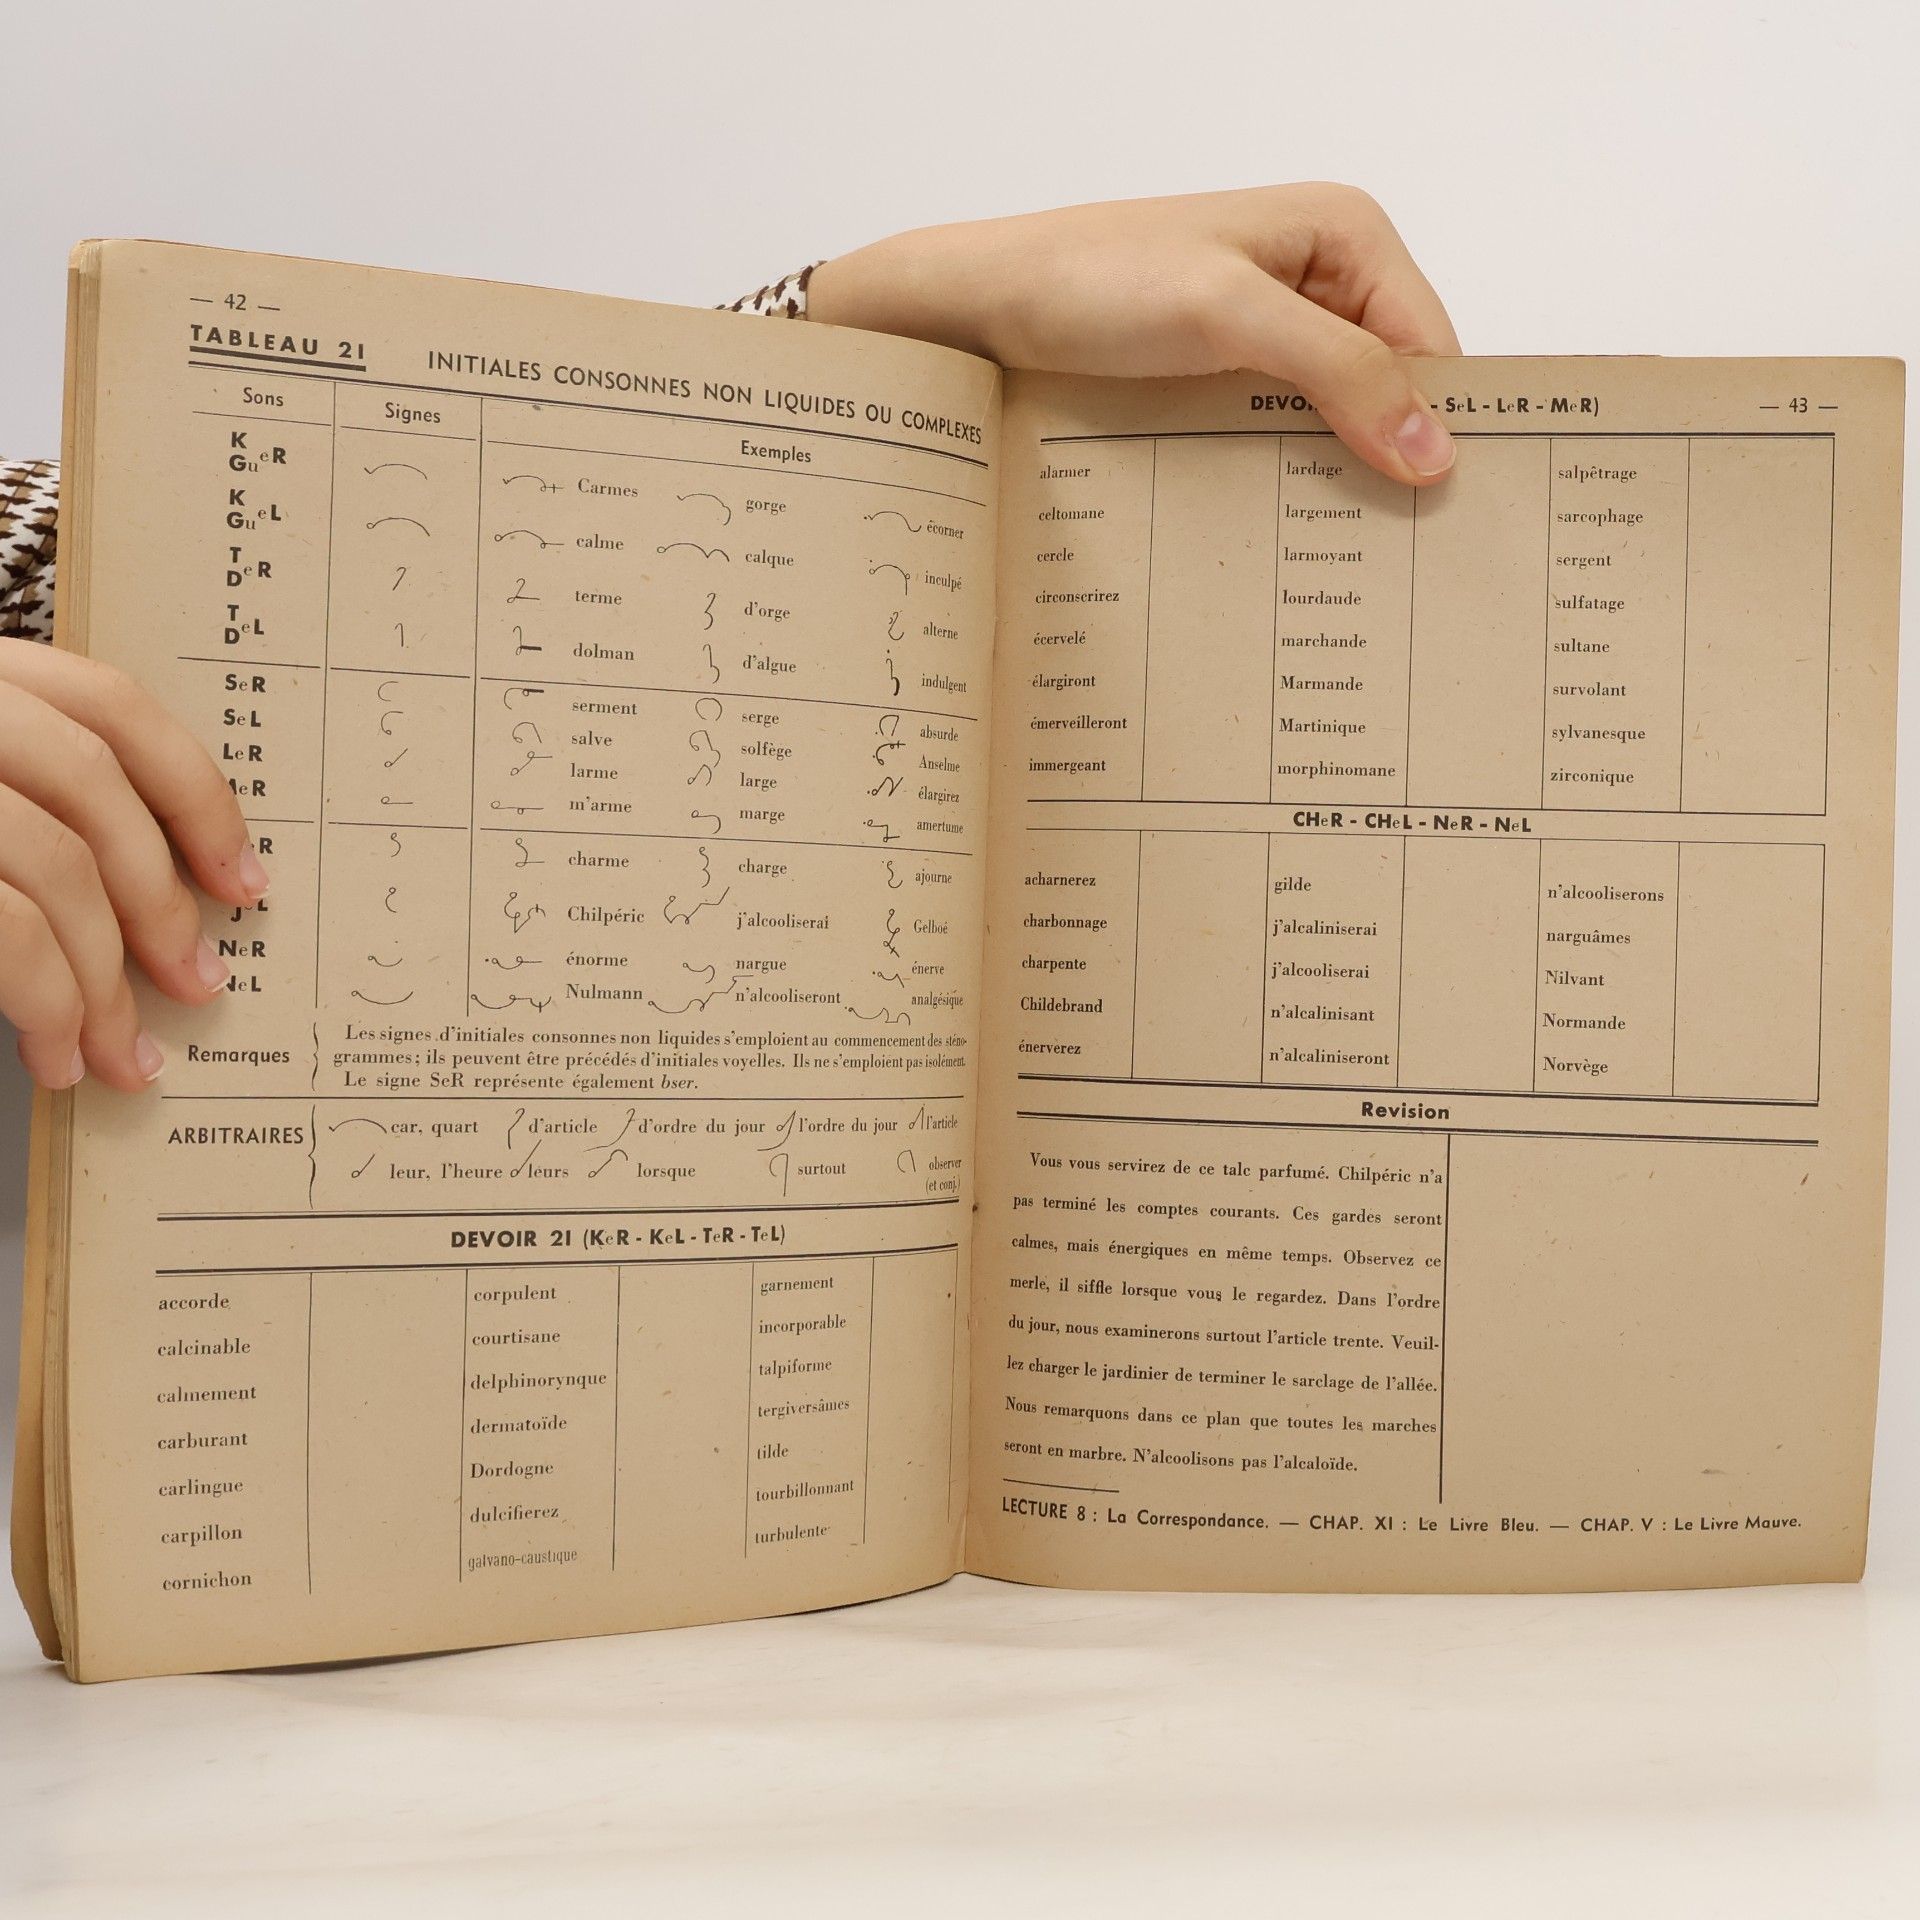 — 42 —
TABLEAU 21 INITIALES CONSONNES NON LIQUIDES OU COMPLEXES
Sons Signes Exemples
K GueR Carmes gorge écorner
K GueL calme calque inculpé
T DeR terme d'orge alterne
T DeL dolman d'algue indulgent
SeR serment serge absurde
SeL salve solfège Anselme
LeR larme large élargirez
MeR m'arme marge amertume
charme charge ajourne
Chilpéric j'alcooliserai Gelboé
NeR énorme nargue énerve
NeL Nulmann n'alcooliseront analgésique
Remarques
Les signes d'initiales consonnes non liquides s'emploient au commencement des sténo-
grammes; ils peuvent être précédés d'initiales voyelles. Ils ne s'emploient pas isolément.
Le signe SeR représente également bser.
ARBITRAIRES
car, quart d'article d'ordre du jour l'ordre du jour l'article
leur, l'heure leurs lorsque surtout observer
(et conj.)
DEVOIR 21 (KeR - KeL - TeR - TeL)
accorde corpulent garnement
calcinable courtisane incorporable
calmement delphinorynque talpiforme
carburant dermatoïde tergiversâmes
carlingue Dordogne tilde
carpillon dulcifierez tourbillonnant
cornichon galvano-caustique turbulente
- SeL - LeR - MeR) — 43 —
alarmer lardage salpêtrage
celtomane largement sarcophage
cercle larmoyant sergent
circonscrirez lourdaude sulfatage
écervelé marchande sultane
élargiront Marmande survolant
émerveilleront Martinique sylvanesque
immergeant morphinomane zirconique
CHeR - CHeL - NeR - NeL
acharnerez gilde n'alcooliserons
charbonnage j'alcaliniserai narguâmes
charpente j'alcooliserai Nilvant
Childebrand n'alcalinisant Normande
énerverez n'alcaliniseront Norvège
Revision
Vous vous servirez de ce talc parfumé. Chilpéric n'a
pas terminé les comptes courants. Ces gardes seront
calmes, mais énergiques en même temps. Observez ce
merle, il siffle lorsque vous le regardez. Dans l'ordre
du jour, nous examinerons surtout l'article trente. Veuil-
lez charger le jardinier de terminer le sarclage de l'allée.
Nous remarquons dans ce plan que toutes les marches
seront en marbre. N'alcoolisons pas l'alcaloïde.
LECTURE 8 : La Correspondance. — CHAP. XI : Le Livre Bleu. — CHAP. V : Le Livre Mauve.